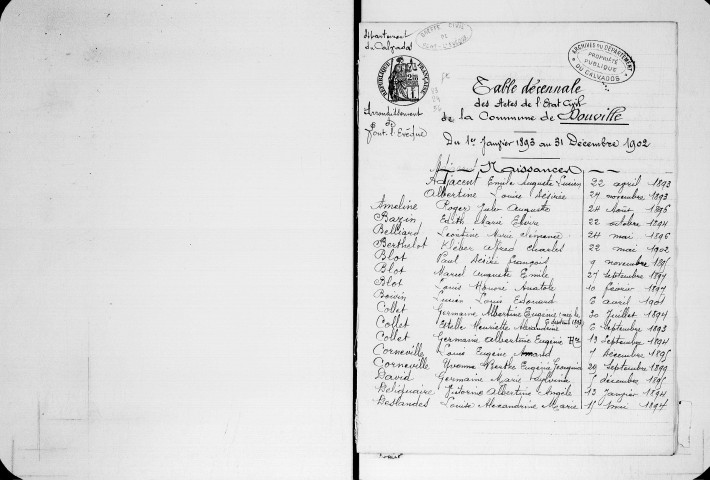 Département
du Calvados
GREFFE CIVIL
DE
PONT-L'EVÊQUE
ARCHIVES DU DÉPARTEMENT
PROPRIÉTÉ
PUBLIQUE
DU CALVADOS
RÉPUBLIQUE FRANÇAISE
Arrondissement
de
Pont-l'Evêque
Table décennale
des Actes de l'Etat Civil
de la Commune de Douville
Du 1er Janvier 1893 au 31 Décembre 1902
Naissances
Adjacent Emile Auguste Lucien 22 avril 1893
Albertine Louise Désirée 24 novembre 1893
Ameline Roger Jules Auguste 24 Août
Bazin Edith Marie 22 octobre 1894
Belliard Léontine Marie 24 mai 1896
Berthelot Kléber Alfred Charles 22 mai 1902
Blot Paul Désiré François 9 novembre
Blot Marcel Auguste Emile 27 Septembre 1897
Blot Louis Honoré Anatole 10 février 1897
Boivin Lucien Louis Edouard 6 avril 1901
Collet Germaine Albertine Eugénie 30 Juillet 1894
Collet Estelle Henriette Alexandrine 6 Septembre 1893
Collet Germaine Albertine Eugénie 13 Septembre 1894
Corneville Louis Eugène Armand 7 décembre
Corneville Yvonne Berthe Eugénie Georgina 29 Septembre 1899
David Germaine Marie Sylvina décembre
Deliquaire Victorine Albertine Angèle 13 Janvier 1894
Deslandes Louise Alexandrine Marie 15 mai 1897